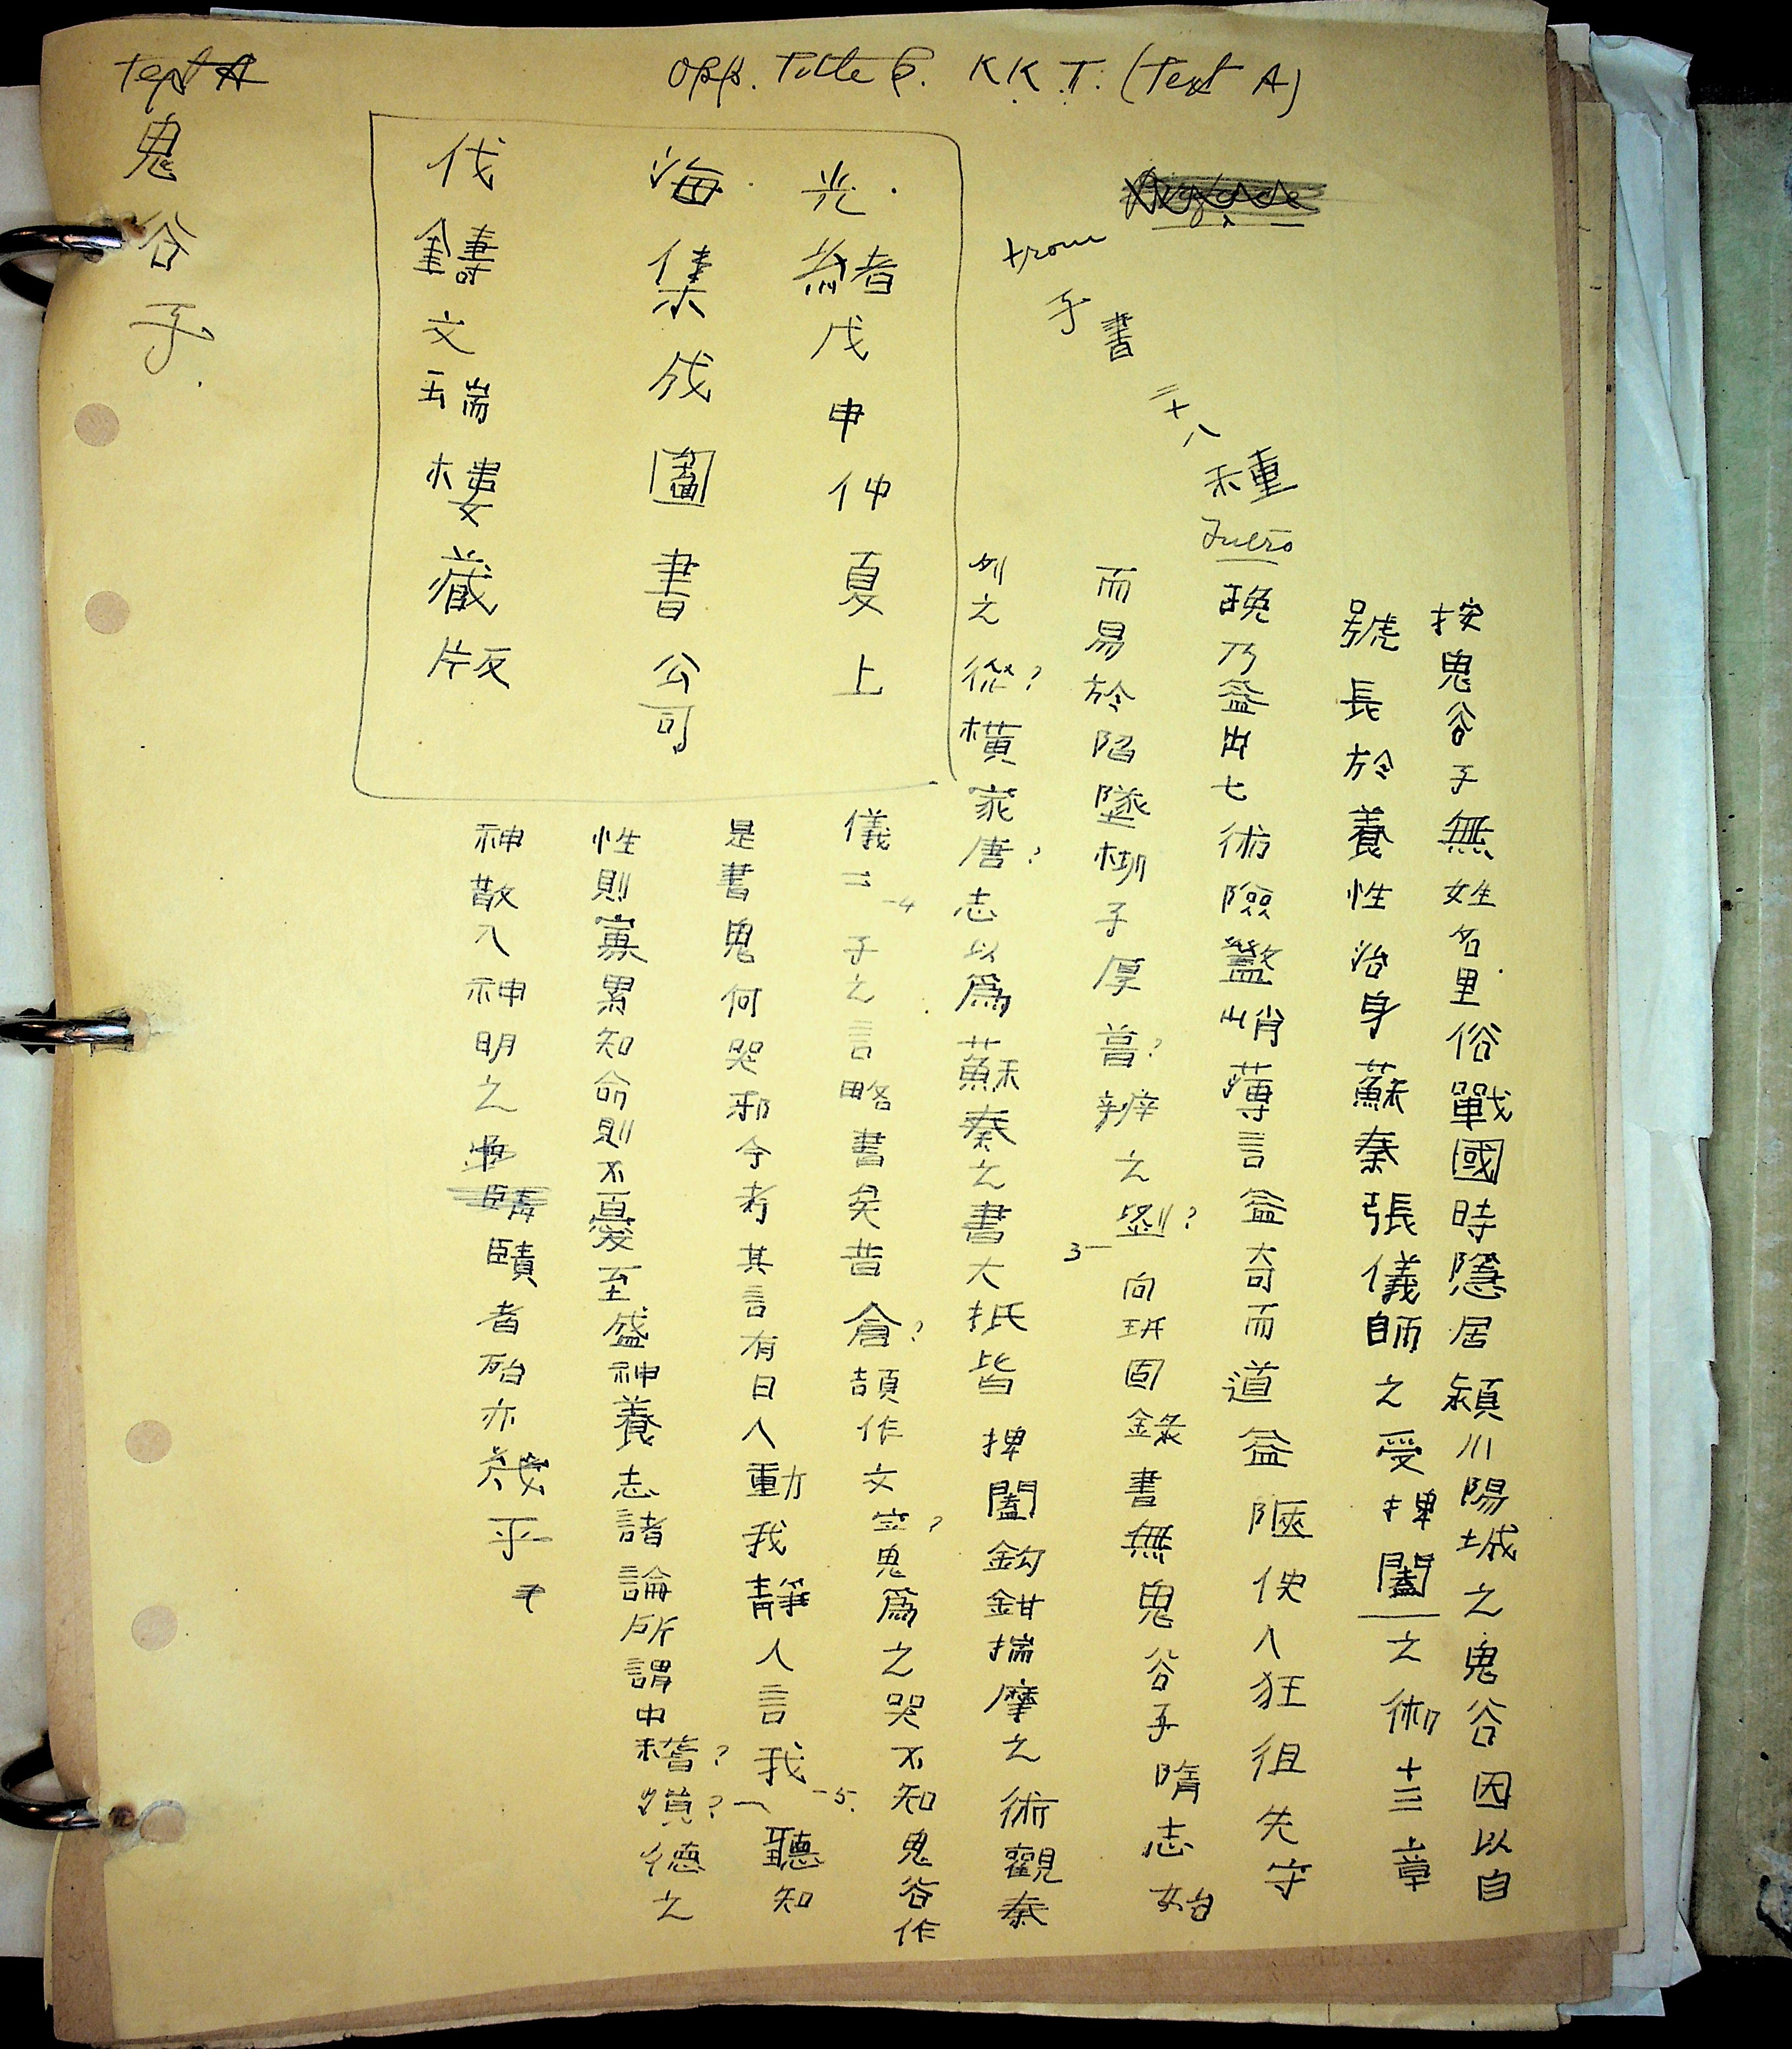 Text A
Opp. Title P. K.K.T. (Text A)
鬼谷子
光緒戊申仲夏上
海集成圖書公司
伐鑄文瑞樓藏版
from
子書
二十八
種
Intro
按鬼谷子無姓名里俗戰國時隱居潁川陽城之鬼谷因以自
號長於養性治身蘇秦張儀師之受捭闔之術十三章
晚乃益出七術險盩峭薄言益奇而道益陿使人狂狙失守
而易於陷墜柳子厚嘗?辨之劉?向班固錄書無鬼谷子隋志始
3—
列之從?橫家唐?志以爲蘇秦之書大抵皆捭闔鈎鉗揣摩之術觀秦
儀二子之言略書矣昔倉?頡作文字?鬼爲之哭不知鬼谷作
-4
是書鬼何哭邪今考其言有曰人動我靜人言我聽知
-5.
性則寡累知命則不憂至盛神養志諸論所謂中稽?道?德之
神散入神明之賾者殆亦幾乎